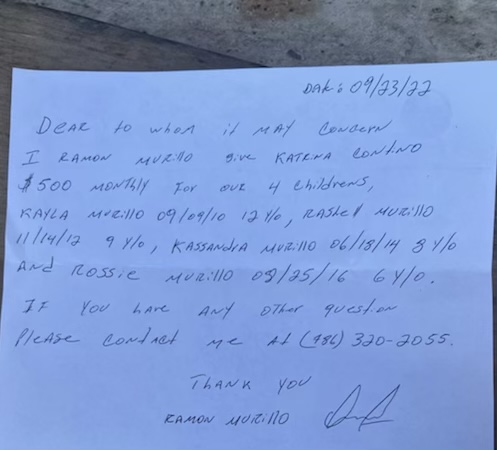 Date: 09/23/22
Dear to whom it may concern
I Ramon Murillo give Katrina Contino
$500 monthly for our 4 childrens,
Kayla Murillo 09/09/10 12 Y/o, Rashel Murillo
11/14/12 9 Y/o, Kassandra Murillo 06/18/14 8 Y/o
And Rossie Murillo 08/25/16 6 Y/o.
If you have any other question
Please contact me at (786) 320-2055.
Thank you
Ramon Murillo